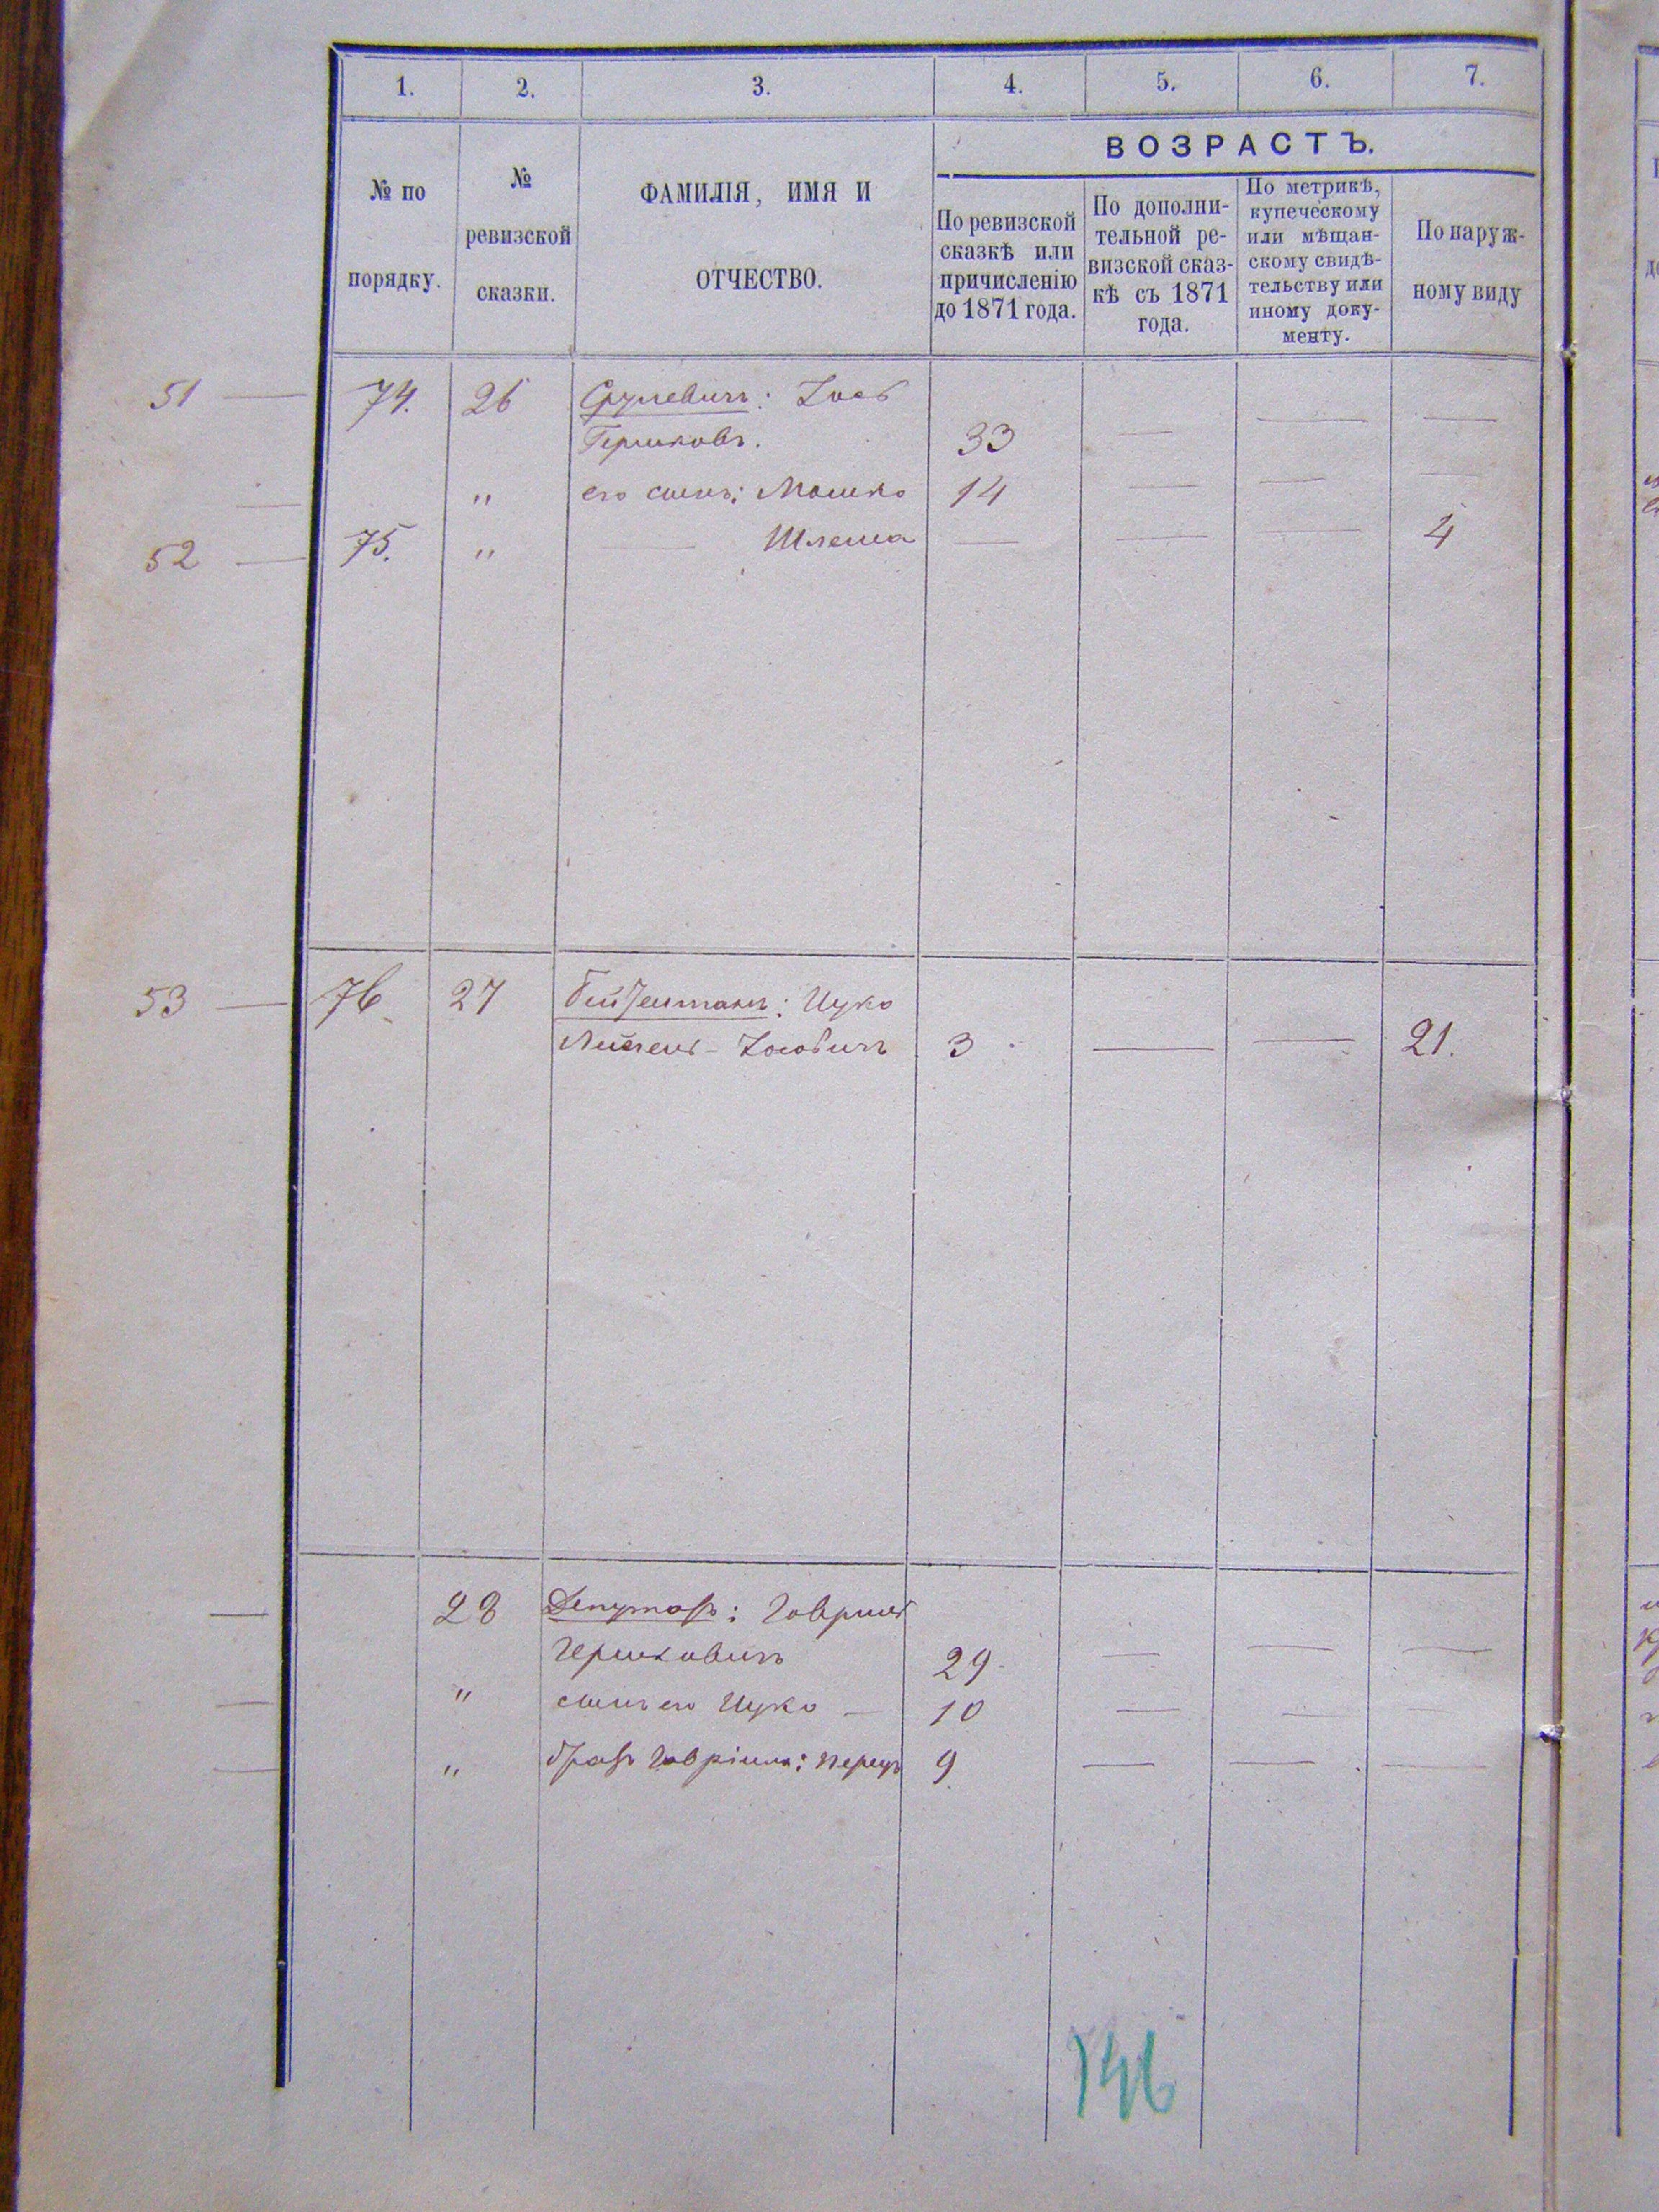 1. 2. 3. 4. 5. 6. 7.
№ по порядку.
№ ревизской сказки.
ФАМИЛІЯ, ИМЯ И
ОТЧЕСТВО.
ВОЗРАСТЪ.
По ревизской
сказкѣ или
причисленію
до 1871 года.
По дополни-
тельной ре-
визской сказ-
кѣ съ 1871
года.
По метрикѣ,
купеческому
или мѣщан-
скому свидѣ-
тельству или
иному доку-
менту.
По наруж-
ному виду
51 — 74. 26 Срулевичъ: Іось — —
Гершковъ. 33 —
— " его сынъ: Мошко 14 — — —
52 — 75. " — Шлема — — — 4
53 — 76 27 : Ицко
Іосьовичъ 3 — — 21.
— 28 Депутатъ: Говриль
Гершковичъ 29 — — —
— " сынъ его Ицко — 10 — — —
— " братъ Говріила: Перецъ 9 — — —
146